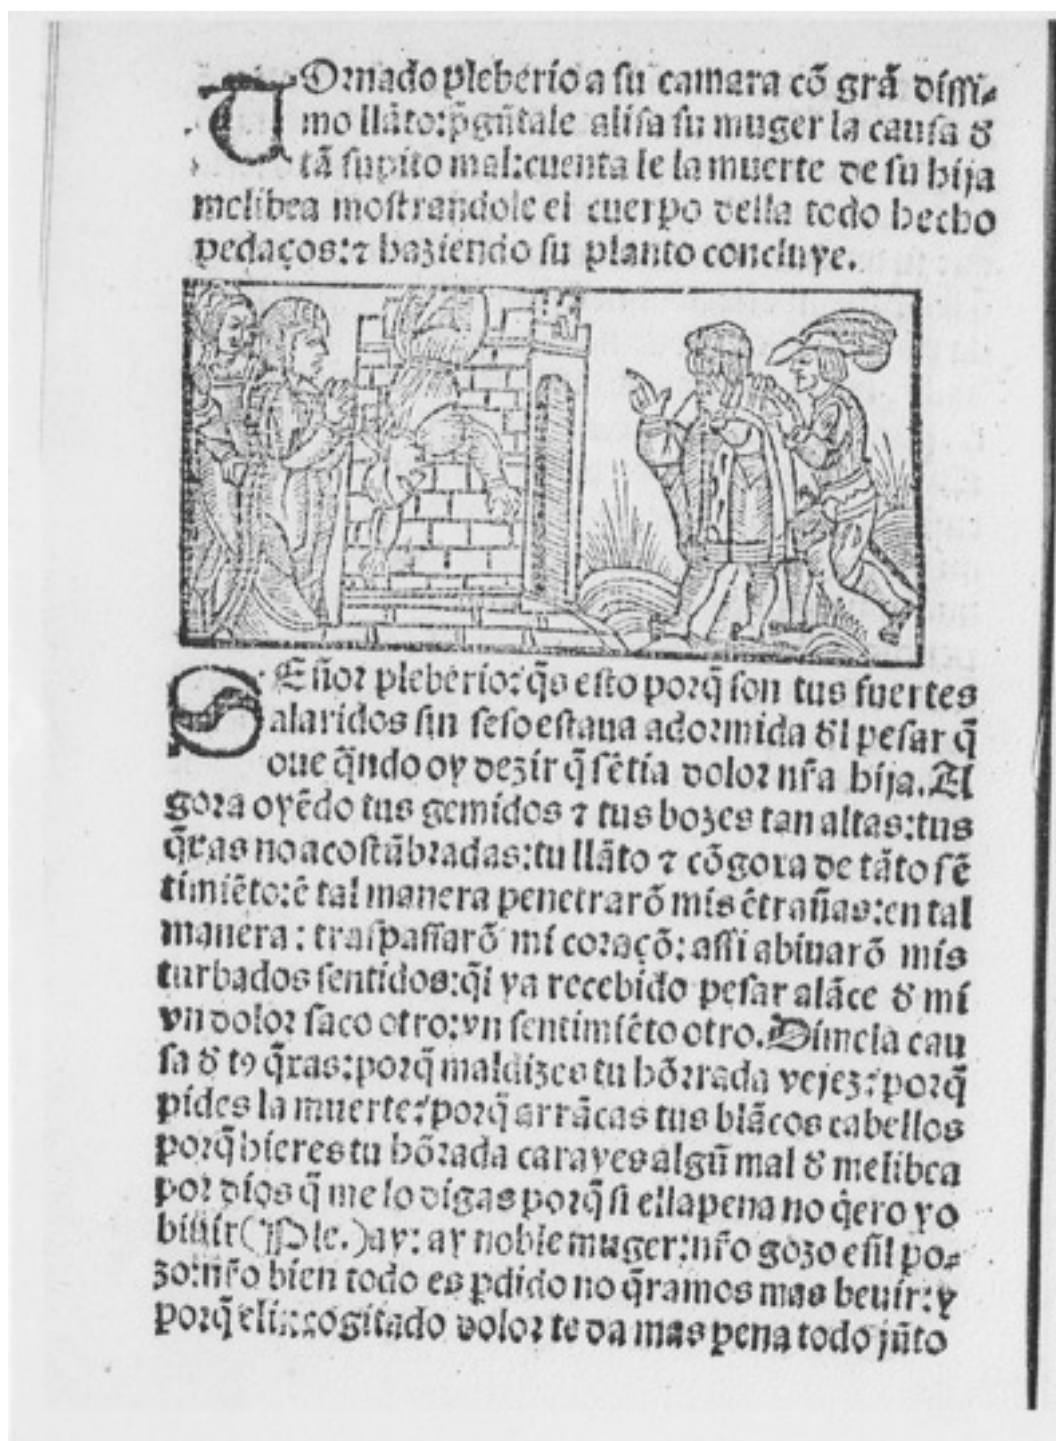 TOrnado pleberio a su camara cõ grã dissi-
mo llãto: p̃gũtale alisa su muger la causa d̃
tã supito mal: cuenta le la muerte de su hija
melibea mostrandole el cuerpo della todo hecho
pedaços: ⁊ haziendo su planto concluye.
SEñor pleberio: q̃s esto porq̃ son tus fuertes
alaridos sin seso estaua adormida d̃l pesar q̃
oue q̃ndo oy dezir q̃ sẽtia dolor nr̃a hija. A
gora oyẽdo tus gemidos ⁊ tus bozes tan altas: tus
q̃xas no acostũbradas: tu llãto ⁊ cõgoxa de tãto sẽ
timiẽto: ẽ tal manera penetrarõ mis ẽtrañas: en tal
manera: traspassarõ mi coraçõ: assi abiuarõ mis
turbados sentidos: q̃l ya recebido pesar alãce d̃ mi
vn dolor saco otro: vn sentimiẽto otro. Dime la cau
sa d̃ tꝰ q̃xas: porq̃ maldizes tu hõrrada vejez: porq̃
pides la muerte: porq̃ arrãcas tus blãcos cabellos
porq̃ hieres tu hõrada cara yes algũ mal d̃ melibea
por dios q̃ me lo digas porq̃ si ella pena no q̃ero yo
biuir (Ple.) ay: ay noble muger: nr̃o gozo es ĩl po-
zo: nr̃o bien todo es ꝑdido no q̃ramos mas beuir: y
porq̃ el incogitado dolor te da mas pena todo jũto